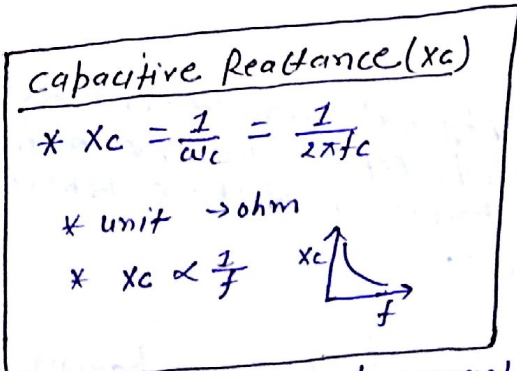 capacitive Reactance (Xc)
* Xc = 1/ωc = 1/2πfc
* unit → ohm
* Xc ∝ 1/f
Xc
f